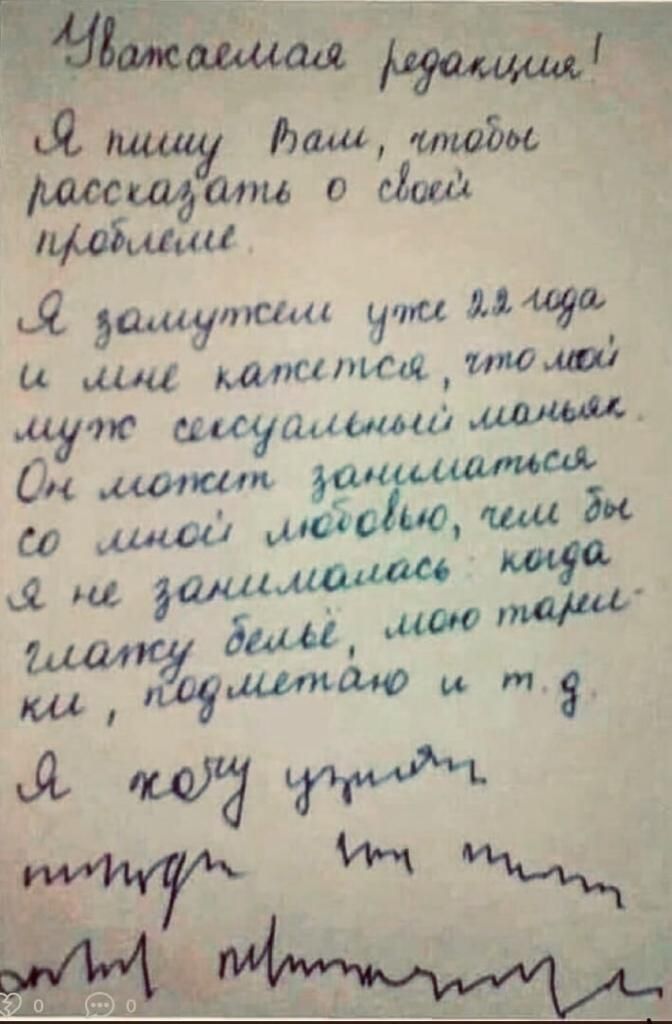 Уважаемая редакция!
Я пишу Вам, чтобы
рассказать о своей
проблеме.
Я замужем уже 22 года
и мне кажется, что мой
муж сексуальный маньяк.
Он может заниматься
со мной любовью, чем бы
я не занималась: когда
глажу бельё, мою тарел-
ки, подметаю и т.д.
Я хочу
0 0